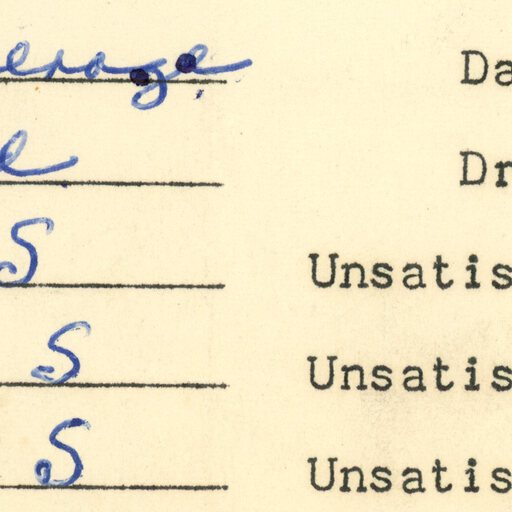 erage Da
e Dr
S Unsatis
S Unsatis
S Unsatis